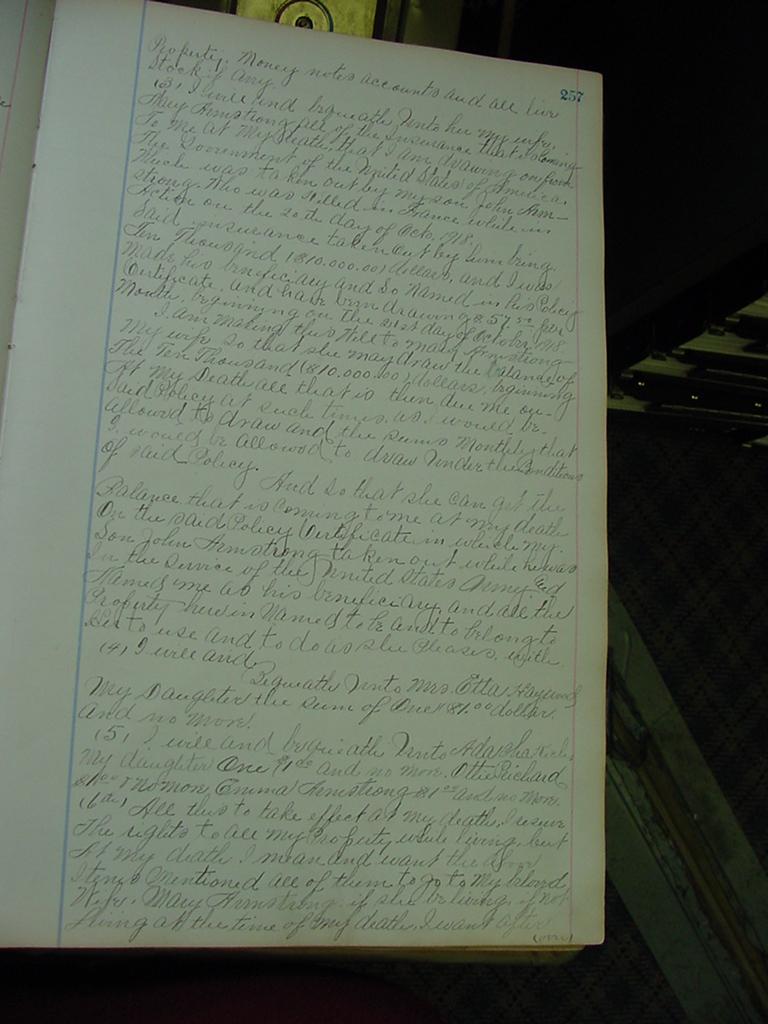 257
Property, Money notes accounts and all live
Stock if any.
(3) I will and bequeath Unto her my wife,
Mary Armstrong all of the insurance that is coming
To me at My Death, that I am drawing on from
The Government of the United States of America.
Which was taken out by my son John Arm-
strong. Who was Killed in France while in
Action on the 20th day of Octo. 1918.
Said insurance taken out by him being
Ten Thousand ($10.000.00) dollars, and I was
Made his beneficiary and so Named in his Policy
Certificate. and have been drawing $57.50 per
Month, beginning on the 21st day of October 1918.
I am making this Will to Mary Armstrong
My wife so that she may draw the balance of
The Ten Thousand ($10.000.00) dollars, beginning
At My Death all that is then due me on
Said Policy at such times as I would be
allowed to draw and the sums Monthly that
I would be allowed to draw under the Conditions
Of said Policy.
And so that she can get the
Balance that is coming to me at my death
On the said Policy Certificate in which my
Son John Armstrong taken out while he was
In the Service of the United States Army and
Named me as his beneficiary, and all the
Property herein Named to be and to belong to
Her to use and to do as she Pleases, with.
(4) I will and
Bequeath Unto Mrs. Etta
My Daughter the sum of One ($1.00 dollar.
And no more.
(5) I will and bequeath Unto Ada
My daughter One $1.00 and no more. Ottie Richard
$1.00 & no more, Emma Armstrong $1.00 and no more.
(6th) All this to take effect at my death, I reserve
The rights to all my Property while living, but
At My death I mean and want the above
Items Mentioned all of them to go to My beloved
Wife, Mary Armstrong, if she be living, if not
living at the time of my death, I want after
(over)